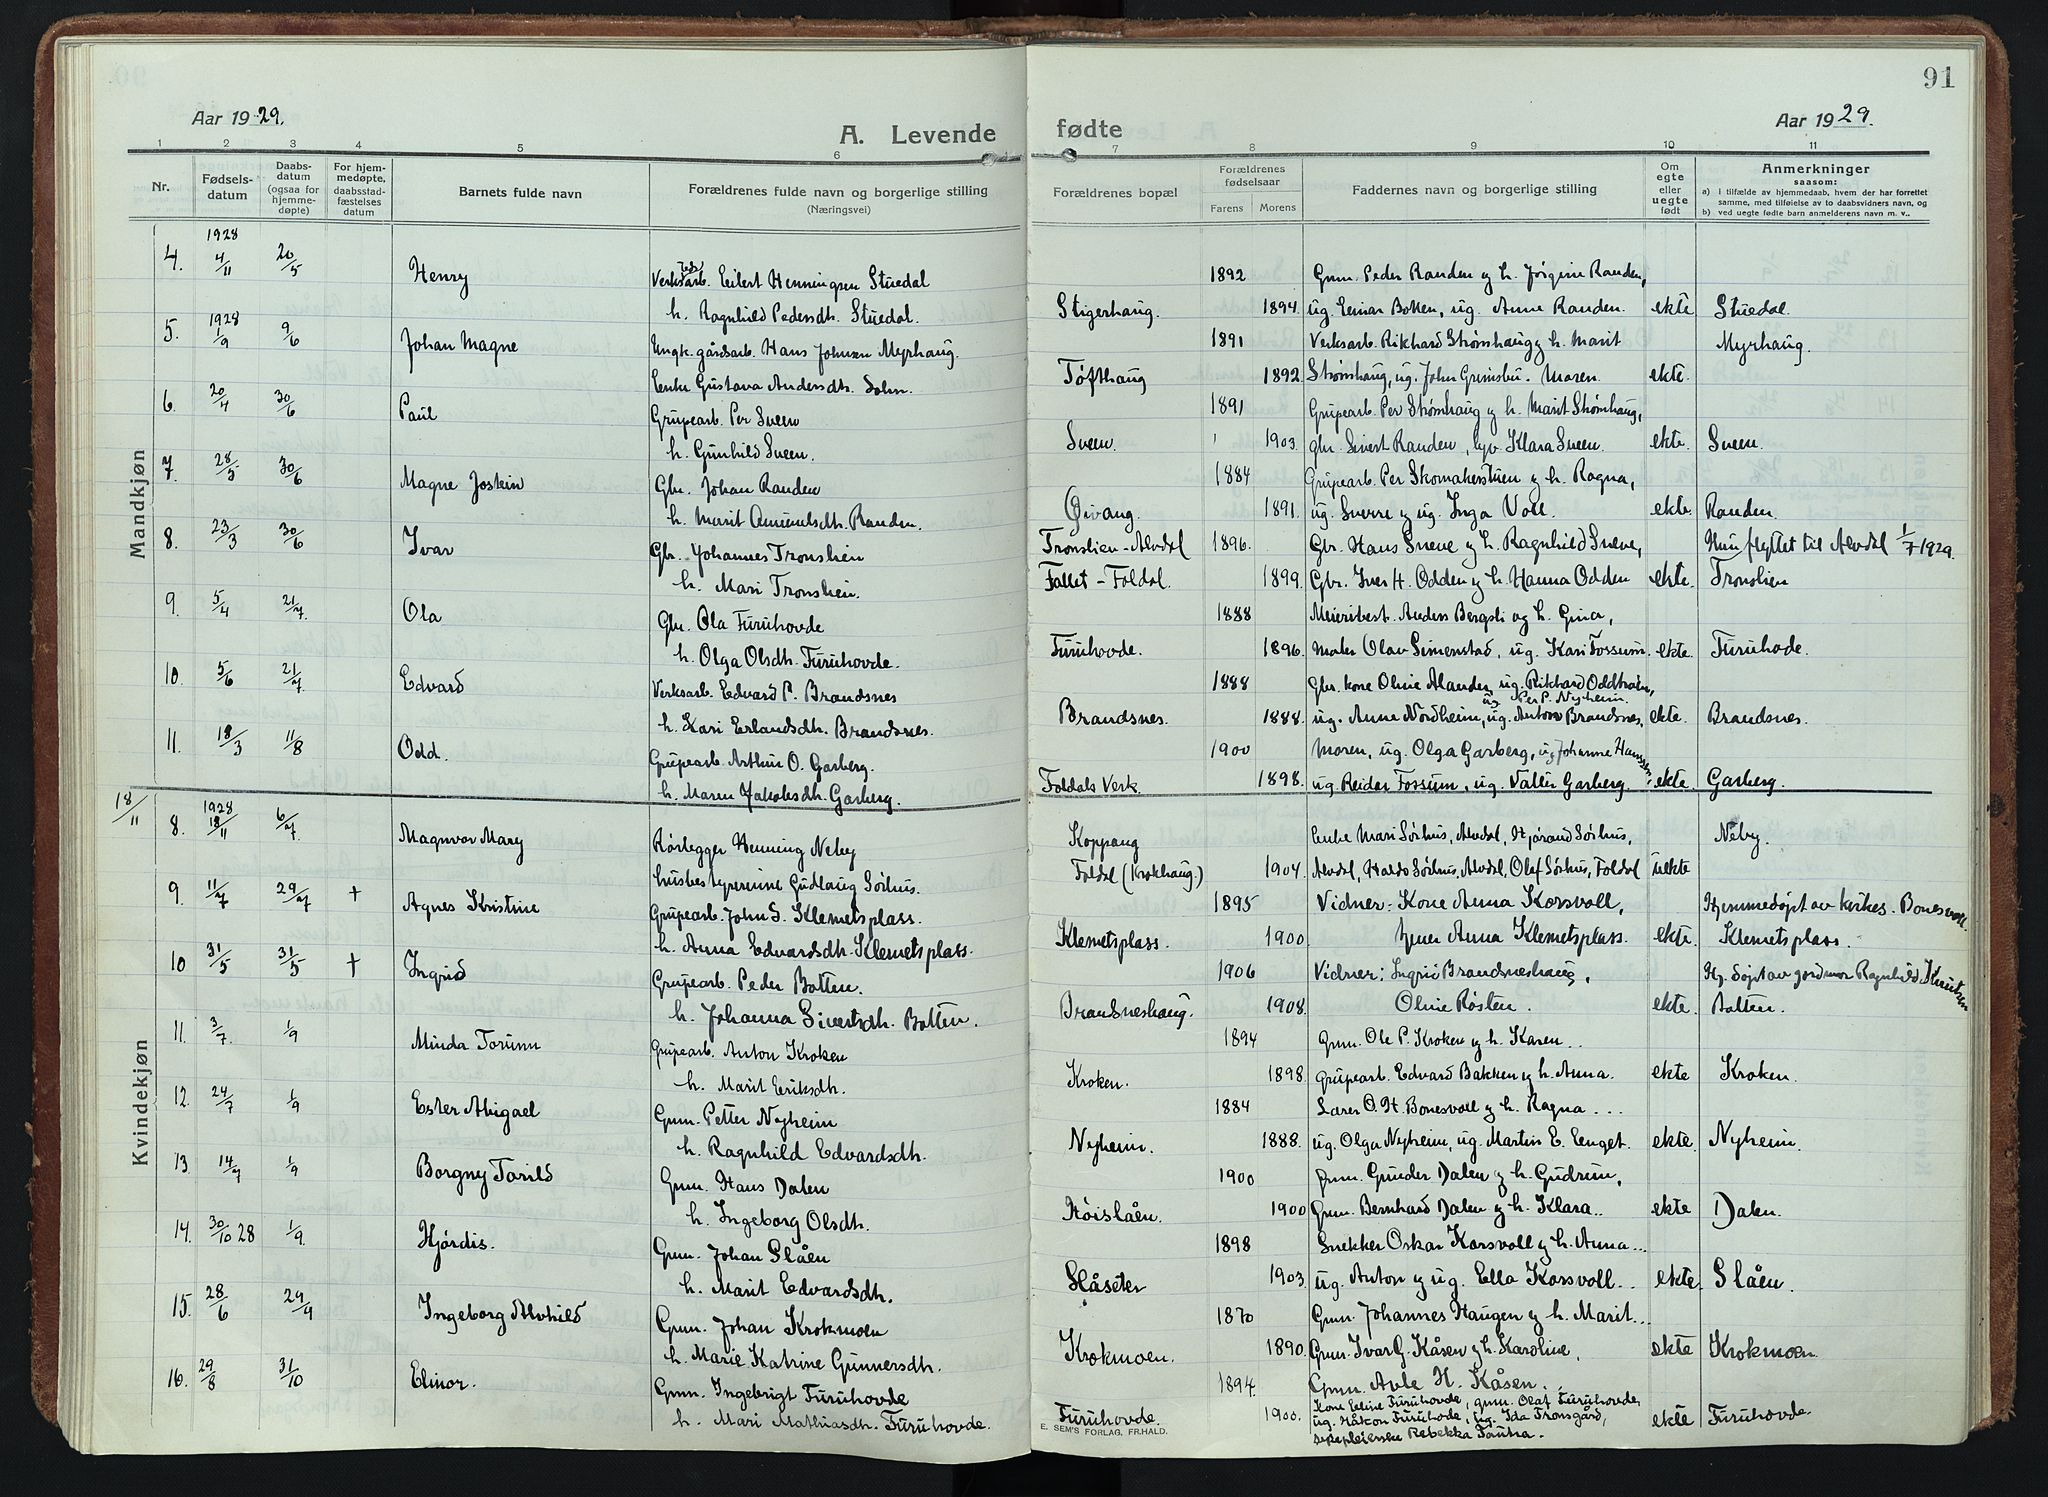 91
Aar 1929.
A. Levende fødte
Aar 1929.
1 2 3 4 5 6 7 8 9 10 11
Nr.
Fødsels-
datum
Daabs-
datum
(ogsaa for
hjemme-
døpte)
For hjem-
medøpte,
daabsstad-
fæstelses
datum
Barnets fulde navn
Forældrenes fulde navn og borgerlige stilling
(Næringsvei)
Forældrenes bopæl
Forældrenes
fødselsaar
Farens Morens
Faddernes navn og borgerlige stilling
Om
egte
eller
uegte
født
Anmerkninger
saasom:
a) I tilfælde av hjemmedaab, hvem der har forrettet
samme, med tilføielse av to daabsvidners navn, og
b) ved uegte fødte barn anmelderens navn m. v..
Mandkjøn
4. 1928 4/11 20/5 Henry Verksarb. Eilert Henningsen Stuedal 1892 Gmn. Peder Randen og h. Jørgine Randen,
h. Ragnhild Pedersdh. Stuedal. Stigerhaug. 1894 ug. Einar Botten, ug. Anne Randen. ekte Stuedal.
5. 1928 1/9 9/6 Johan Magne Ungk. gårdsarb. Hans Johnsen Myrhaug. 1891 Verksarb. Rikhard Strømhaug og h. Marit Myrhaug.
Enke Gustava Andersdh. Tøfthaug 1892. Strømhaug, ug. John Grimsbu. Moren. ekte.
6. 20/4 30/6 Paul Grupearb. Per Sveen 1891 Grupearb. Per Strømhaug og h. Marit Strømhaug,
h. Gunhild Sveen. Sveen. 1903. gbr. Sivert Randen, Klara Sveen. ekte. Sveen.
7. 28/5 30/6 Magne Jostein Gbr. Johan Randen 1884 Grupearb. Per Skomakerstuen og h. Ragna,
h. Marit Amundsdh. Randen. Øivang. 1891. ug. Sverre og ug. Inga Voll. ekte. Randen.
8. 23/3 30/6 Ivar Gbr. Johannes Tronslien Tronslien-Alvdal 1896. Gbr. Hans Sneve og h. Ragnhild Sneve, Hun flyttet til Alvdal 1/7 1929.
h. Mari Tronslien. Fallet-Foldal. 1899. Gbr. Iver H. Odden og h. Hanna Odden ekte. Tronslien
9. 5/4 21/7. Ola Gbr. Ola Furuhovde 1888 Meieribest. Anders Bergsli og h. Gina,
h. Olga Olsdh. Furuhovde. Furuhovde. 1896. Maler Olav Simenstad, ug. Kari Fossum. ekte. Furuhode.
10. 5/6 21/7. Edvard Verksarb. Edvard P. Brandsnes 1888 Gbr. kone Oline Alander, ug. Rikhard Oddtrøen,
ug Per P. Nyheim.
h. Kari Erlandsdh. Brandsnes. Brandsnes. 1888. ug. Anne Nordheim, ug. Anton Brandsnes, ekte. Brandsnes.
11. 18/3 11/8 Odd. Grupearb. Arthur O. Garberg. 1900 Moren, ug. Olga Garberg, ug Johanne Hanssen,
h. Maren Jakobsdh. Garberg. Foldals Verk. 1898. ug. Reidar Fossum, ug. Valter Garberg. ekte. Garberg.
Kvindekjøn
18/11 8. 1928 18/11 6/7. Magnvor Mary Rørlegger Henning Neby Koppang Enke Mari Sørhus, Alvdal, Hjørand Sørhus, Neby.
husbestyrerinne Gudlaug Sørhus. Foldal (Krokhaug.) 1904. Alvdal, Haldo Sørhus, Alvdal, Olaf Sørhus, Foldal uekte
9. 11/7 29/7 + Agnes Kristine Grupearb. John S. Klemetsplass. 1895 Vidner: Kone Anna Korsvoll, Hjemmedøpt av kirkes. Bonesvoll.
h. Anna Edvardsdh. Klemetsplass. Klemetsplass. 1900. Anna Klemetsplass. ekte. Klemetsplass.
10. 31/5 31/5 + Ingrid Grupearb. Peder Botten. 1906 Vidner: Ingrid Brandsneshaug, Hj. døpt av jordmor Ragnhild Knutsen
h. Johanna Sivertsdh. Botten. Brandsneshaug. 1908. Oline Røsten. ekte. Botten.
11. 3/7. 1/9 Minda Torunn Grupearb. Anton Kroken 1894 Gmn. Ole P. Kroken og h. Karen..
h. Marit Eriksdh. Kroken. 1898. Grupearb. Edvard Bakken og h. Anna. ekte Kroken.
12. 24/7 1/9 Ester Abigael Gmn. Petter Nyheim 1884 Lærer O. H. Bonesvoll og h. Ragna ...
h. Ragnhild Edvardsdh. Nyheim. 1888. ug. Olga Nyheim, ug. Martin E. Enget. ekte. Nyheim.
13. 14/7 1/9 Borgny Torild Gmn. Hans Dalen 1900 Gmn. Gunder Dalen og h. Gudrun,
h. Ingeborg Olsdh. Høislåen. 1900 Gmn. Bernhard Dalen og h. Klara.. ekte Dalen.
14. 30/10 28 1/9. Hjørdis. Gmn. Johan Slåen 1898 Snekker Oskar Korsvoll og h. Anna...
h. Marit Edvardsdh. Slåseter 1903. ug. Anton og ug. Ella Korsvoll.. ekte. Slåen.
15. 28/6 29/9 Ingeborg Alvhild Gmn. Johan Krokmoen 1870 Gmn. Johannes Haugen og h. Marit...
h. Marie Katrine Gunnersdh. Krokmoen. 1890. Gmn. Ivar G. Kåsen og h. Karoline, ekte Krokmoen.
16. 29/8 31/10 Elinor. Gmn. Ingebrigt Furuhovde 1894 Gmn. Avle H. Kåsen.
Kone Eline Furuhovde, gmn. Olaf Furuhovde,
h. Mari Mathiasdh. Furuhovde. Furuhovde. 1900. ug. Håkon Furuhode, ug. Ida Tronsgård, ekte Furuhovde.
sykepleierske Rebekka Tautra.
E. SEM'S FORLAG, FR.HALD.